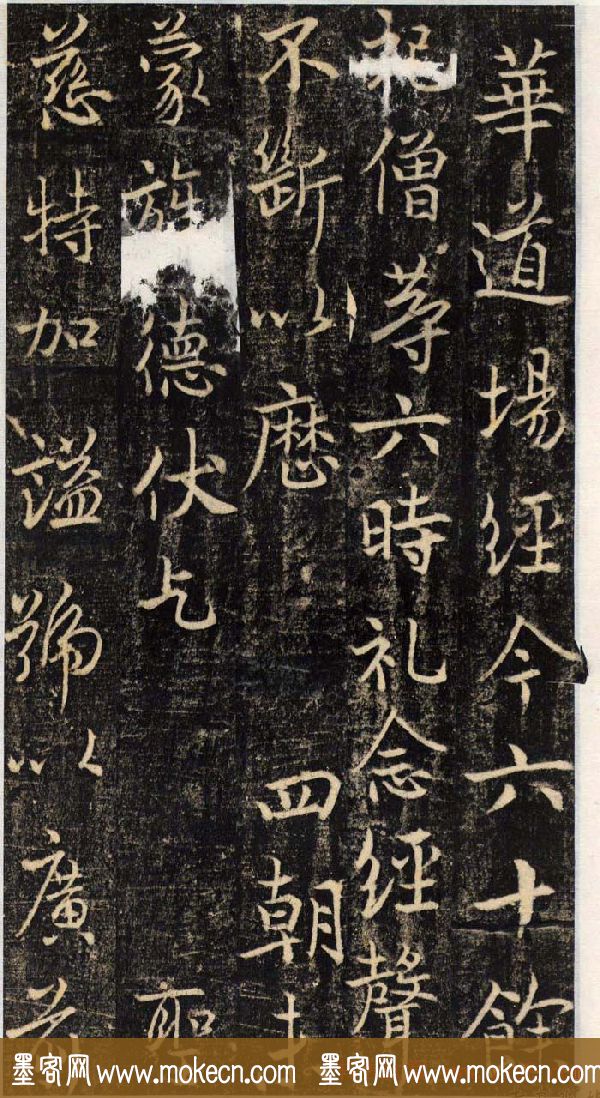 華道場經今六十餘
祀僧等六時礼念經聲
不斷以歷四朝
蒙旌德伏乞聖
慈特加謚號以廣前
墨客网 www.mokecn.com 墨客网 www.mokecn.com 墨客网 www.mokecn.com